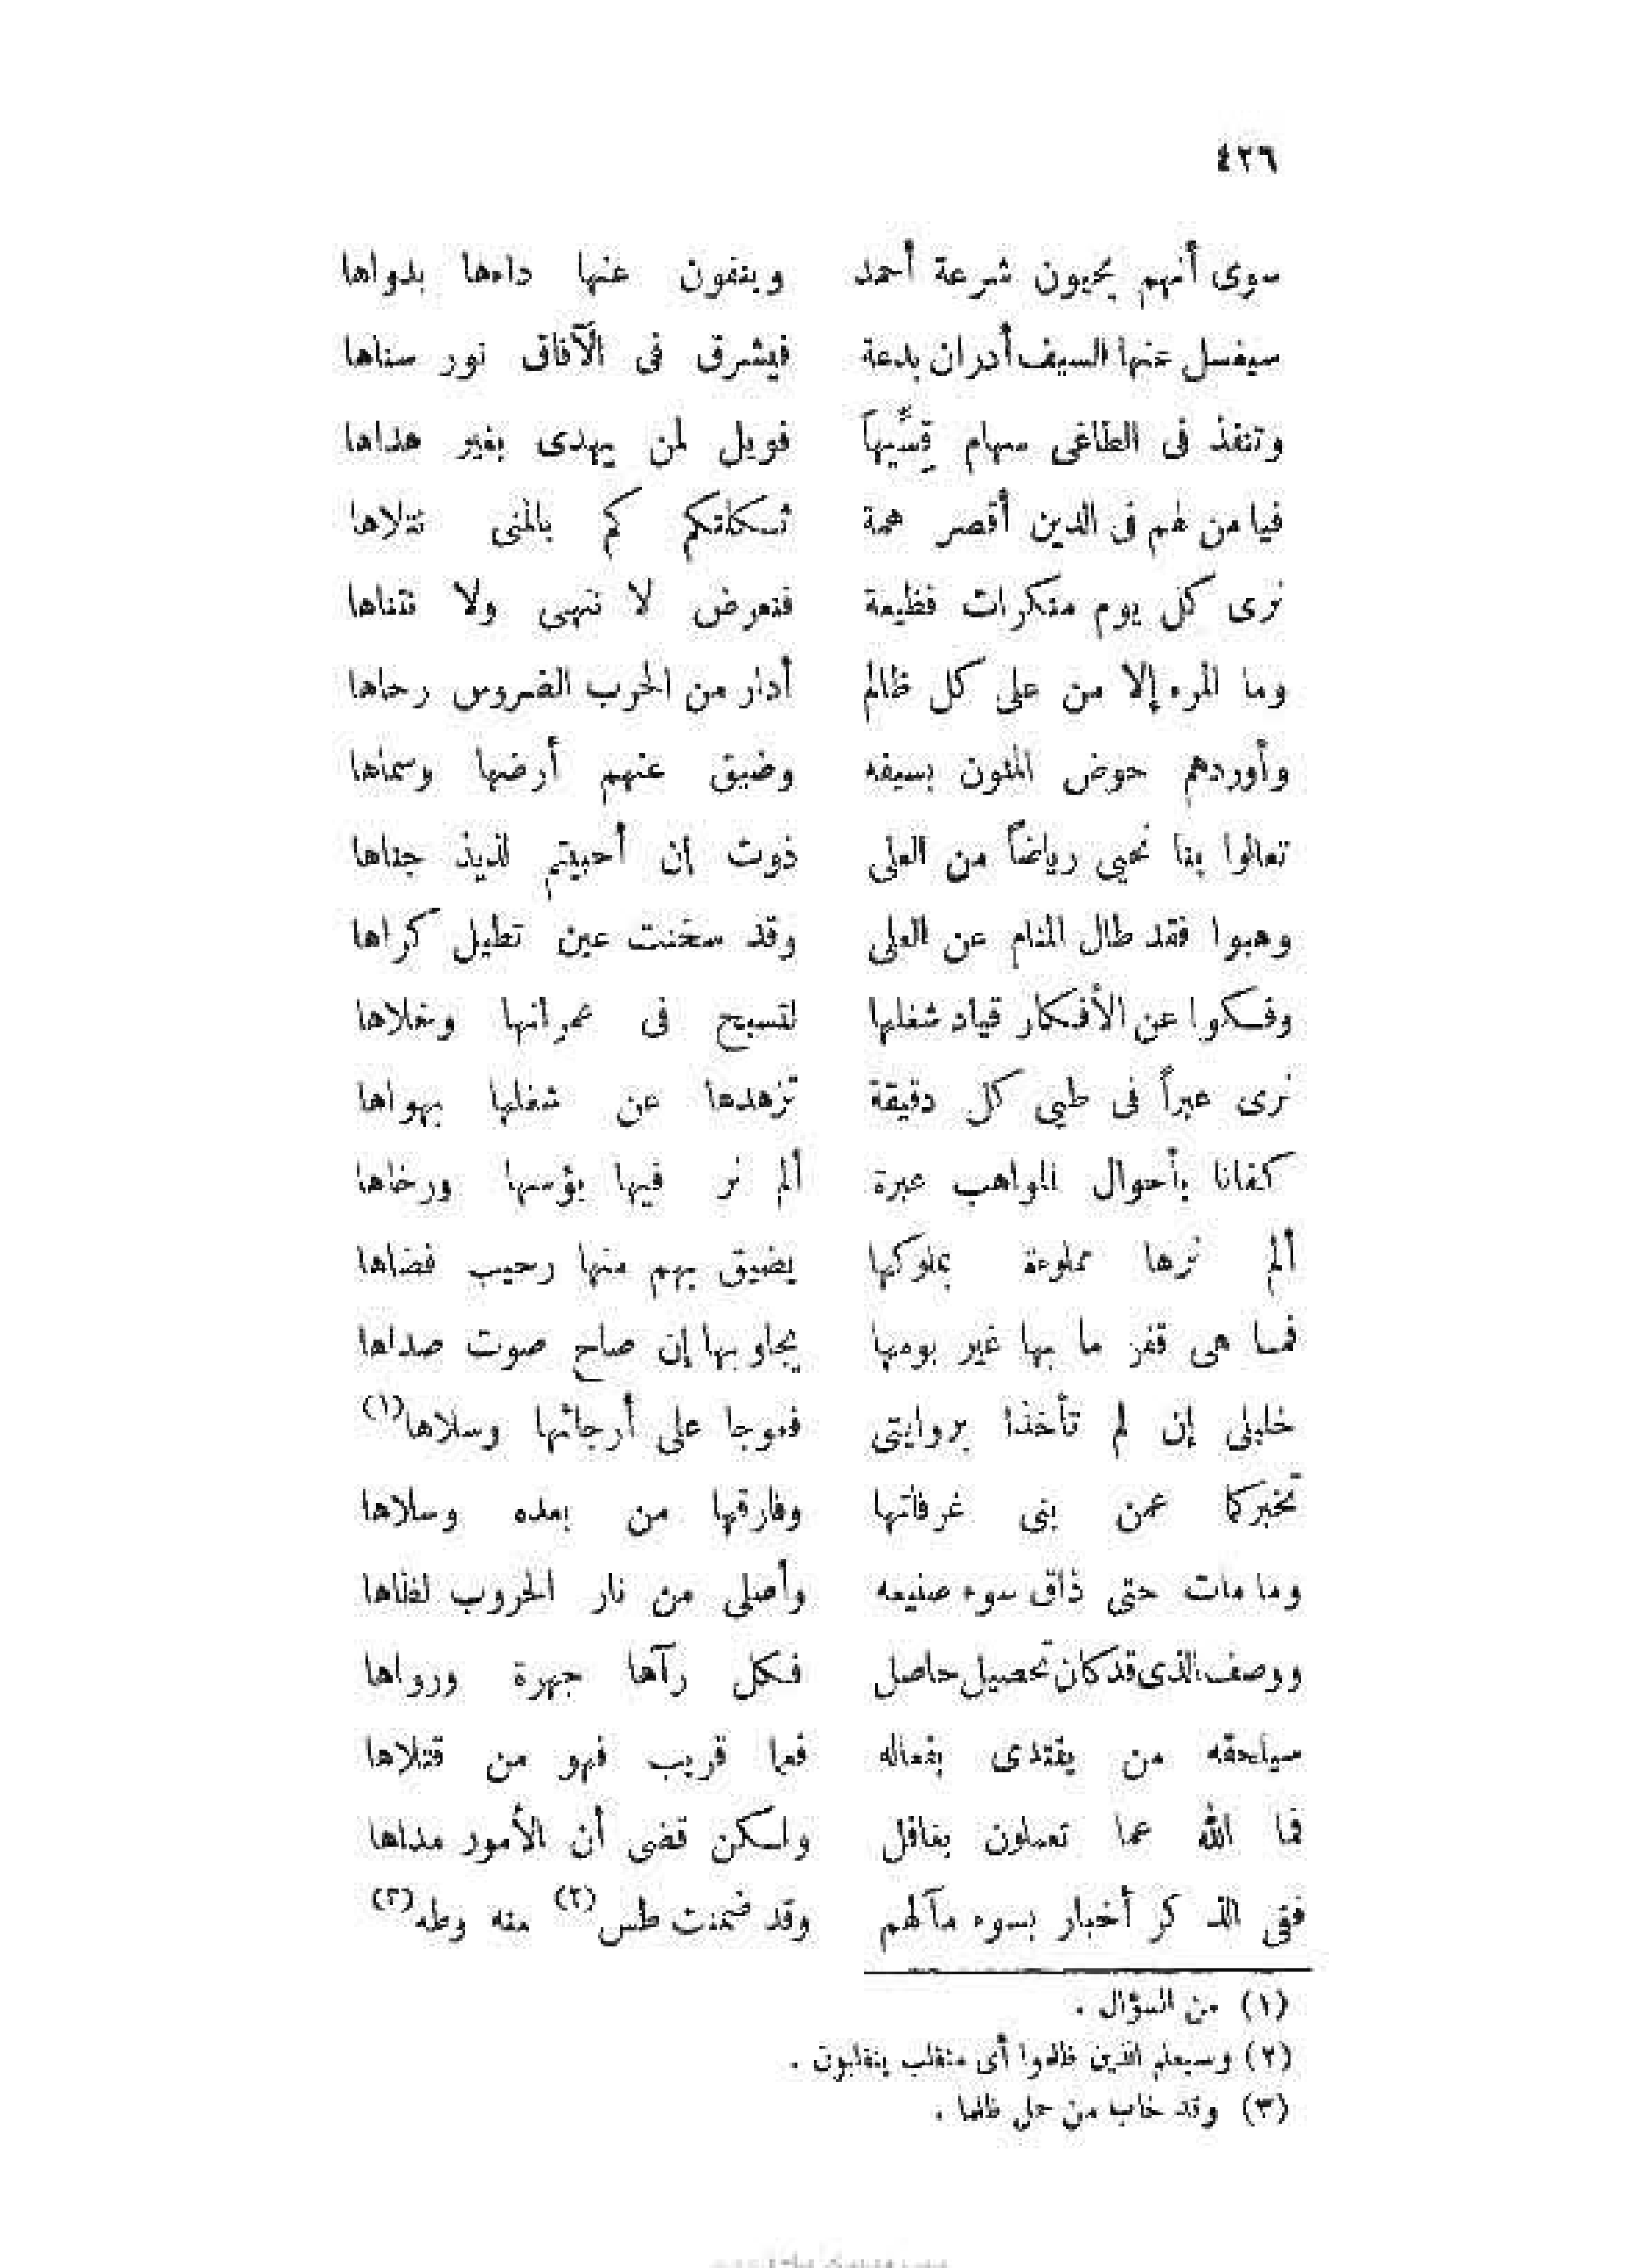 ٤٢٦
سوى أنهم يحيون شرعة أحمد وينفون عنها داءها بدواها
سيغسل عنها السيف أدران بدعة فيشرق فى الآفاق نور سناها
وتنفذ فى الطاغى سهام قِسِّيها فويل لمن يهدى بغير هداها
فيا من لهم فى الدين أقصر همة ثكلتكم كم بالمنى نتلاها
نرى كل يوم منكرات فظيعة فنعرض لا ننهى ولا نتناها
وما المرء إلا من على كل ظالم أدار من الحرب الضروس رحاها
وأوردهم حوض المنون بسيفه وضيق عنهم أرضها وسماها
تعالوا بنا نحيى رياضاً من العلى ذوت إن أحببتم لذيذ جناها
وهبوا فقد طال المنام عن العلى وقد سخنت عين تطيل كراها
وفكوا عن الأفكار قياد شغلها لتسبح فى عمرانها وخلاها
نرى عبراً فى طيى كل دقيقة تزهدها عن شغلها بهواها
كفانا بأحوال المواهب عبرة ألم نر فيها بؤسها ورخاها
ألم نرها مملوءة بملوكها يضيق بهم منها رحيب فضاها
فما هى قفز ما بها غير بومها يجاوبها إن صاح صوت صداها
خليلى إن لم تأخذا بروايتى فعوجا على أرجائها وسلاها(١)
تخبركما عمن بنى غرفاتها وفارقها من بعده وسلاها
وما مات حتى ذاق سوء صنيعه وأصلى من نار الحروب لظاها
ووصف الذى قد كان تحصيل حاصل فكل رآها جهرة ورواها
سيلحقه من يقتدى بفعاله فعما قريب فهو من قتلاها
فما الله عما تعملون بغافل ولكن قضى أن الأمور مداها
ففى الذكر أخبار بسوء مآلهم وقد ضمنت طس(٢) منه وطه(٣)
(١) من السؤال .
(٢) وسيعلم الذين ظلموا أى منقلب ينقلبون .
(٣) وقد خاب من حمل ظلما .